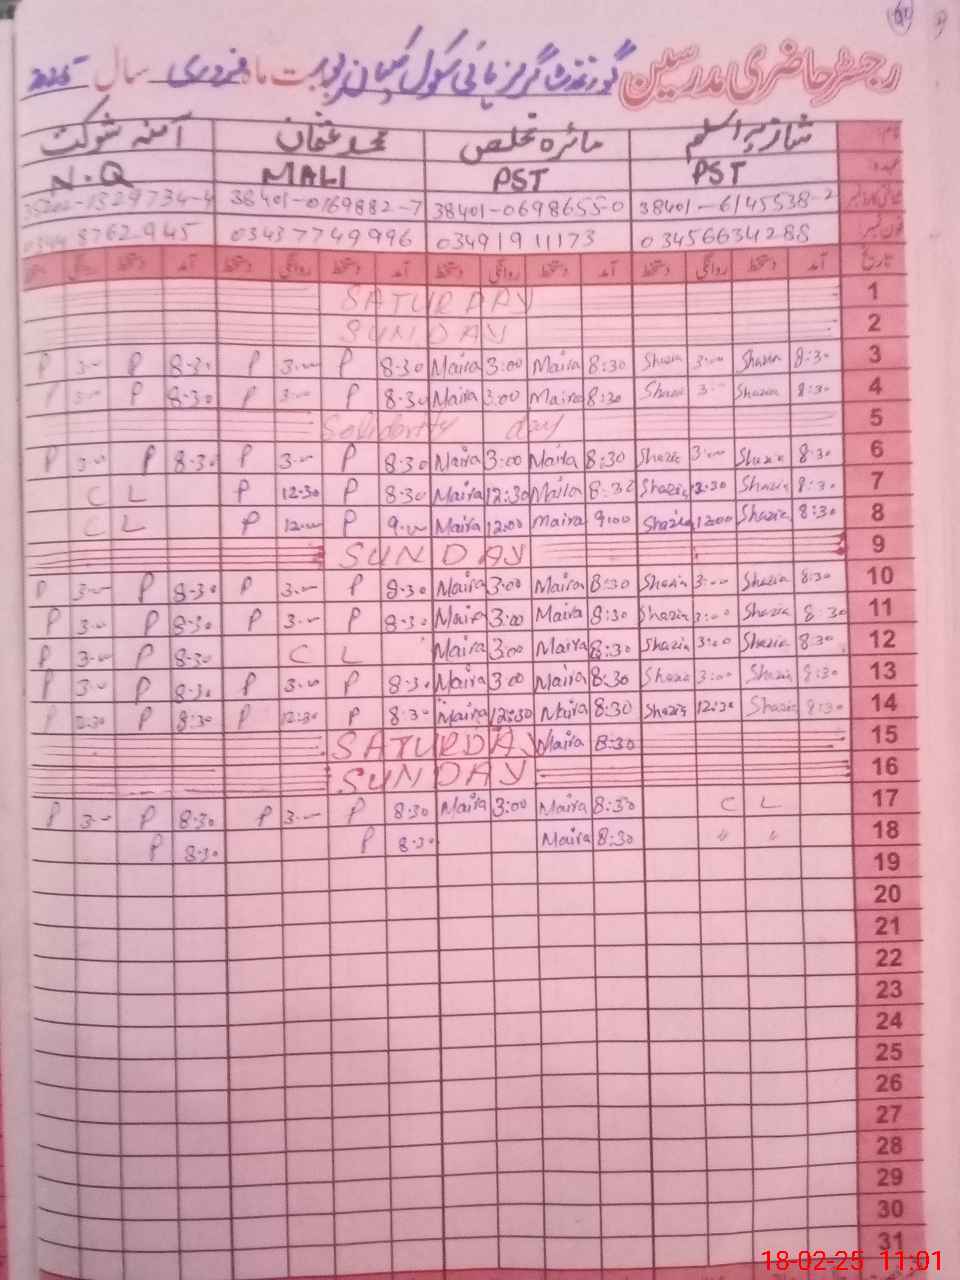 رجسٹر حاضری مدرسین گورنمنٹ گرلز ہائی سکول بابت ماہ فروری سال 2025
نام شازیہ اسلم مائرہ مخلص محمد عثمان آمنہ شوکت
عہدہ PST PST MALI N.Q
شناختی کارڈ نمبر 38401-6145538-2 38401-0698655-0 38401-0169882-7
فون نمبر 03456634288 03491911173 03437749996 03448762945
تاریخ آمد دستخط روانگی دستخط آمد دستخط روانگی دستخط آمد دستخط روانگی دستخط آمد دستخط روانگی دستخط
SATURDAY 1
SUNDAY 2
P 3.00 P 8.30 P 3.00 P 8.30 Maira 3:00 Maira 8:30 Shazia 3:00 Shazia 8:30 3
P 3.00 P 8.30 P 3.00 P 8.30 Maira 3:00 Maira 8:30 Shazia 3:00 Shazia 8:30 4
Solidarity day 5
P 3.00 P 8.30 P 3.00 P 8.30 Maira 3:00 Maira 8:30 Shazia 3:00 Shazia 8:30 6
C L P 12.30 P 8.30 Maira 12:30 Maira 8:30 Shazia 12:30 Shazia 8:30 7
C L P 12.00 P 9.00 Maira 12:00 Maira 9:00 Shazia 12:00 Shazia 8:30 8
SUNDAY 9
P 3.00 P 8.30 P 3.00 P 8.30 Maira 3:00 Maira 8:30 Shazia 3:00 Shazia 8:30 10
P 3.00 P 8.30 P 3.00 P 8.30 Maira 3:00 Maira 8:30 Shazia 3:00 Shazia 8:30 11
P 3.00 P 8.30 C L Maira 3:00 Maira 8:30 Shazia 3:00 Shazia 8:30 12
P 3.00 P 8.30 P 3.00 P 8.30 Maira 3:00 Maira 8:30 Shazia 3:00 Shazia 8:30 13
P 12.30 P 8:30 P 12:30 P 8:30 Maira 12:30 Maira 8:30 Shazia 12:30 Shazia 8:30 14
SATURDAY Maira 8:30 15
SUNDAY 16
P 3.00 P 8.30 P 3.00 P 8.30 Maira 3:00 Maira 8:30 C L 17
P 8.30 P 8.30 Maira 8:30 " " 18
19
20
21
22
23
24
25
26
27
28
29
30
31
18-02-25 11:01